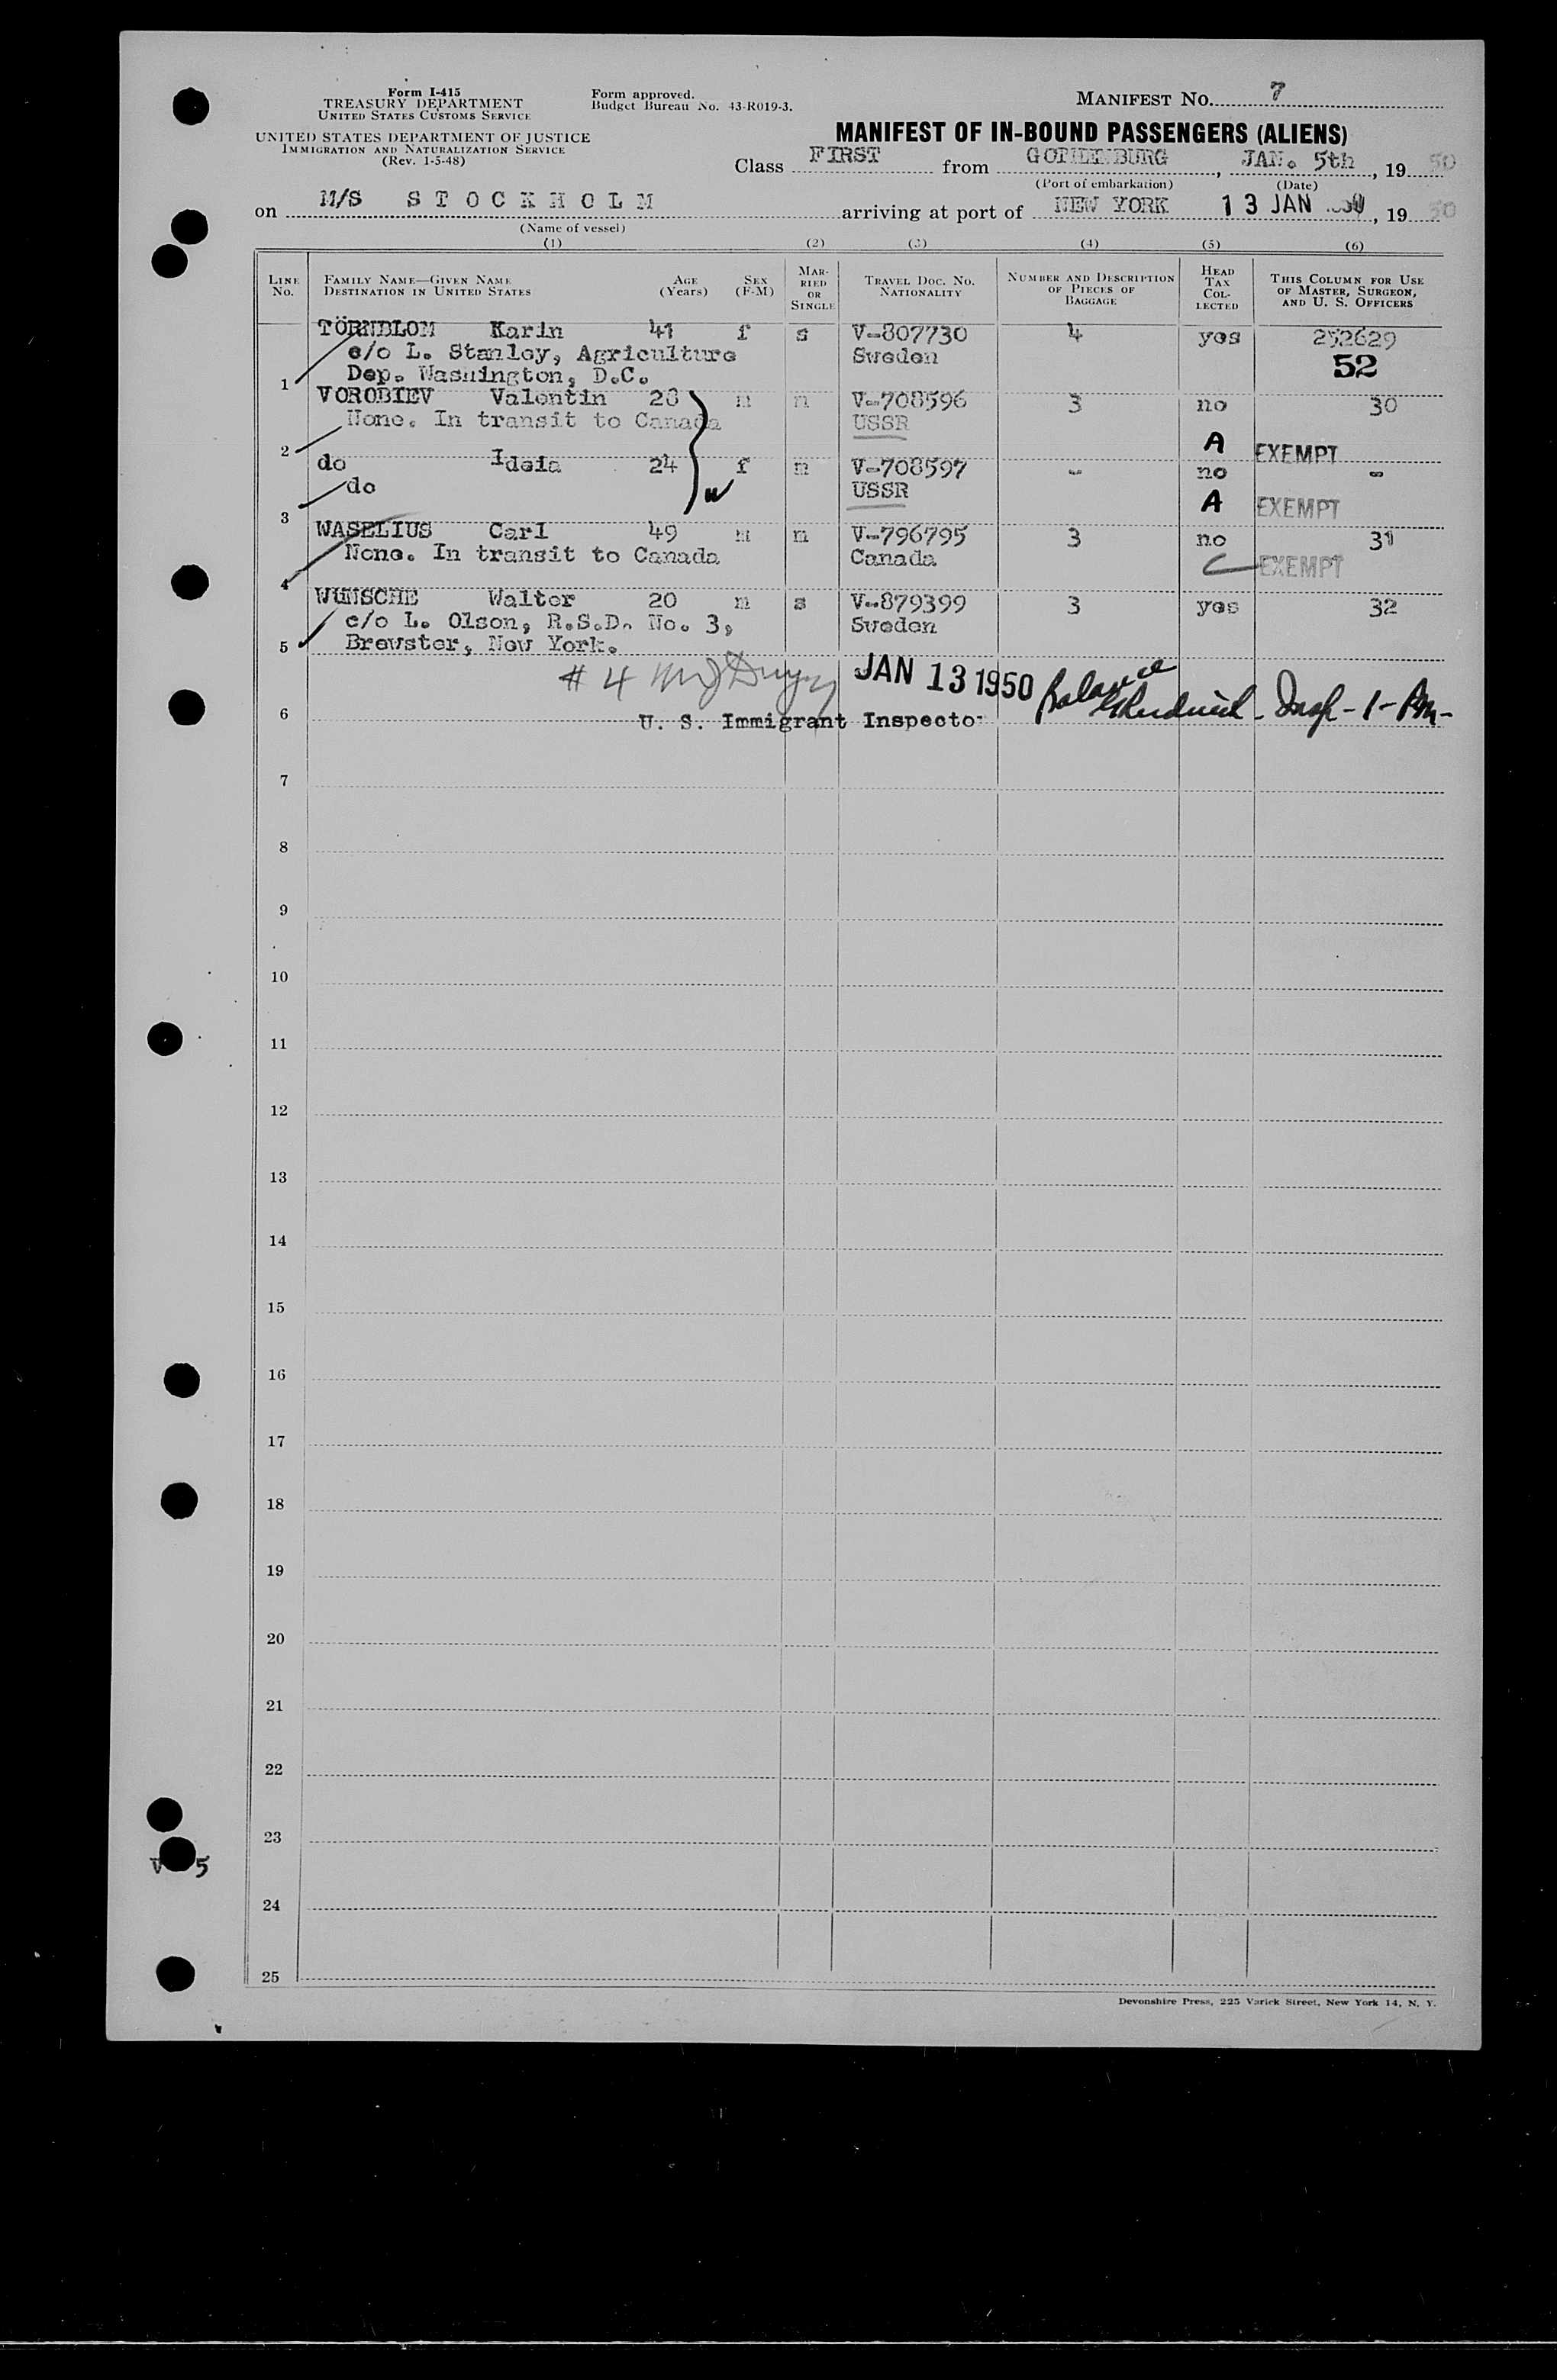 Form I-415
TREASURY DEPARTMENT
UNITED STATES CUSTOMS SERVICE
UNITED STATES DEPARTMENT OF JUSTICE
IMMIGRATION AND NATURALIZATION SERVICE
(Rev. 1-5-48)
Form approved.
Budget Bureau No. 43-R019-3.
MANIFEST No. 7
MANIFEST OF IN-BOUND PASSENGERS (ALIENS)
Class FIRST from GOTHENBURG, JAN. 5th, 19 50
(Port of embarkation) (Date)
on M/S STOCKHOLM arriving at port of NEW YORK 13 JAN, 19 50
(Name of vessel)
(1) (2) (3) (4) (5) (6)
LINE No. FAMILY NAME—GIVEN NAME DESTINATION IN UNITED STATES AGE (Years) SEX (F-M) MARRIED OR SINGLE TRAVEL DOC. NO. NATIONALITY NUMBER AND DESCRIPTION OF PIECES OF BAGGAGE HEAD TAX COLLECTED THIS COLUMN FOR USE OF MASTER, SURGEON, AND U. S. OFFICERS
TÖRNBLOM Karin 41 f s V-807730 4 yes 252629
c/o L. Stanley, Agriculture Sweden 52
1 Dep. Washington, D.C.
VOROBIEV Valentin 28 m m V-708596 3 no 30
None. In transit to Canada USSR
2 A EXEMPT
do Ideia 24 f m V-708597 - no -
do USSR
3 A EXEMPT
WASELIUS Carl 49 m m V-796795 3 no 31
None. In transit to Canada Canada EXEMPT
4
WUNSCHE Walter 20 m s V-879399 3 yes 32
c/o L. Olson, R.S.D. No. 3, Sweden
5 Brewster, New York.
# 4 JAN 13 1950 Balance
6 U. S. Immigrant Inspector Insp-
7
8
9
10
11
12
13
14
15
16
17
18
19
20
21
22
23
V 5
24
25
Devonshire Press, 225 Varick Street, New York 14, N. Y.